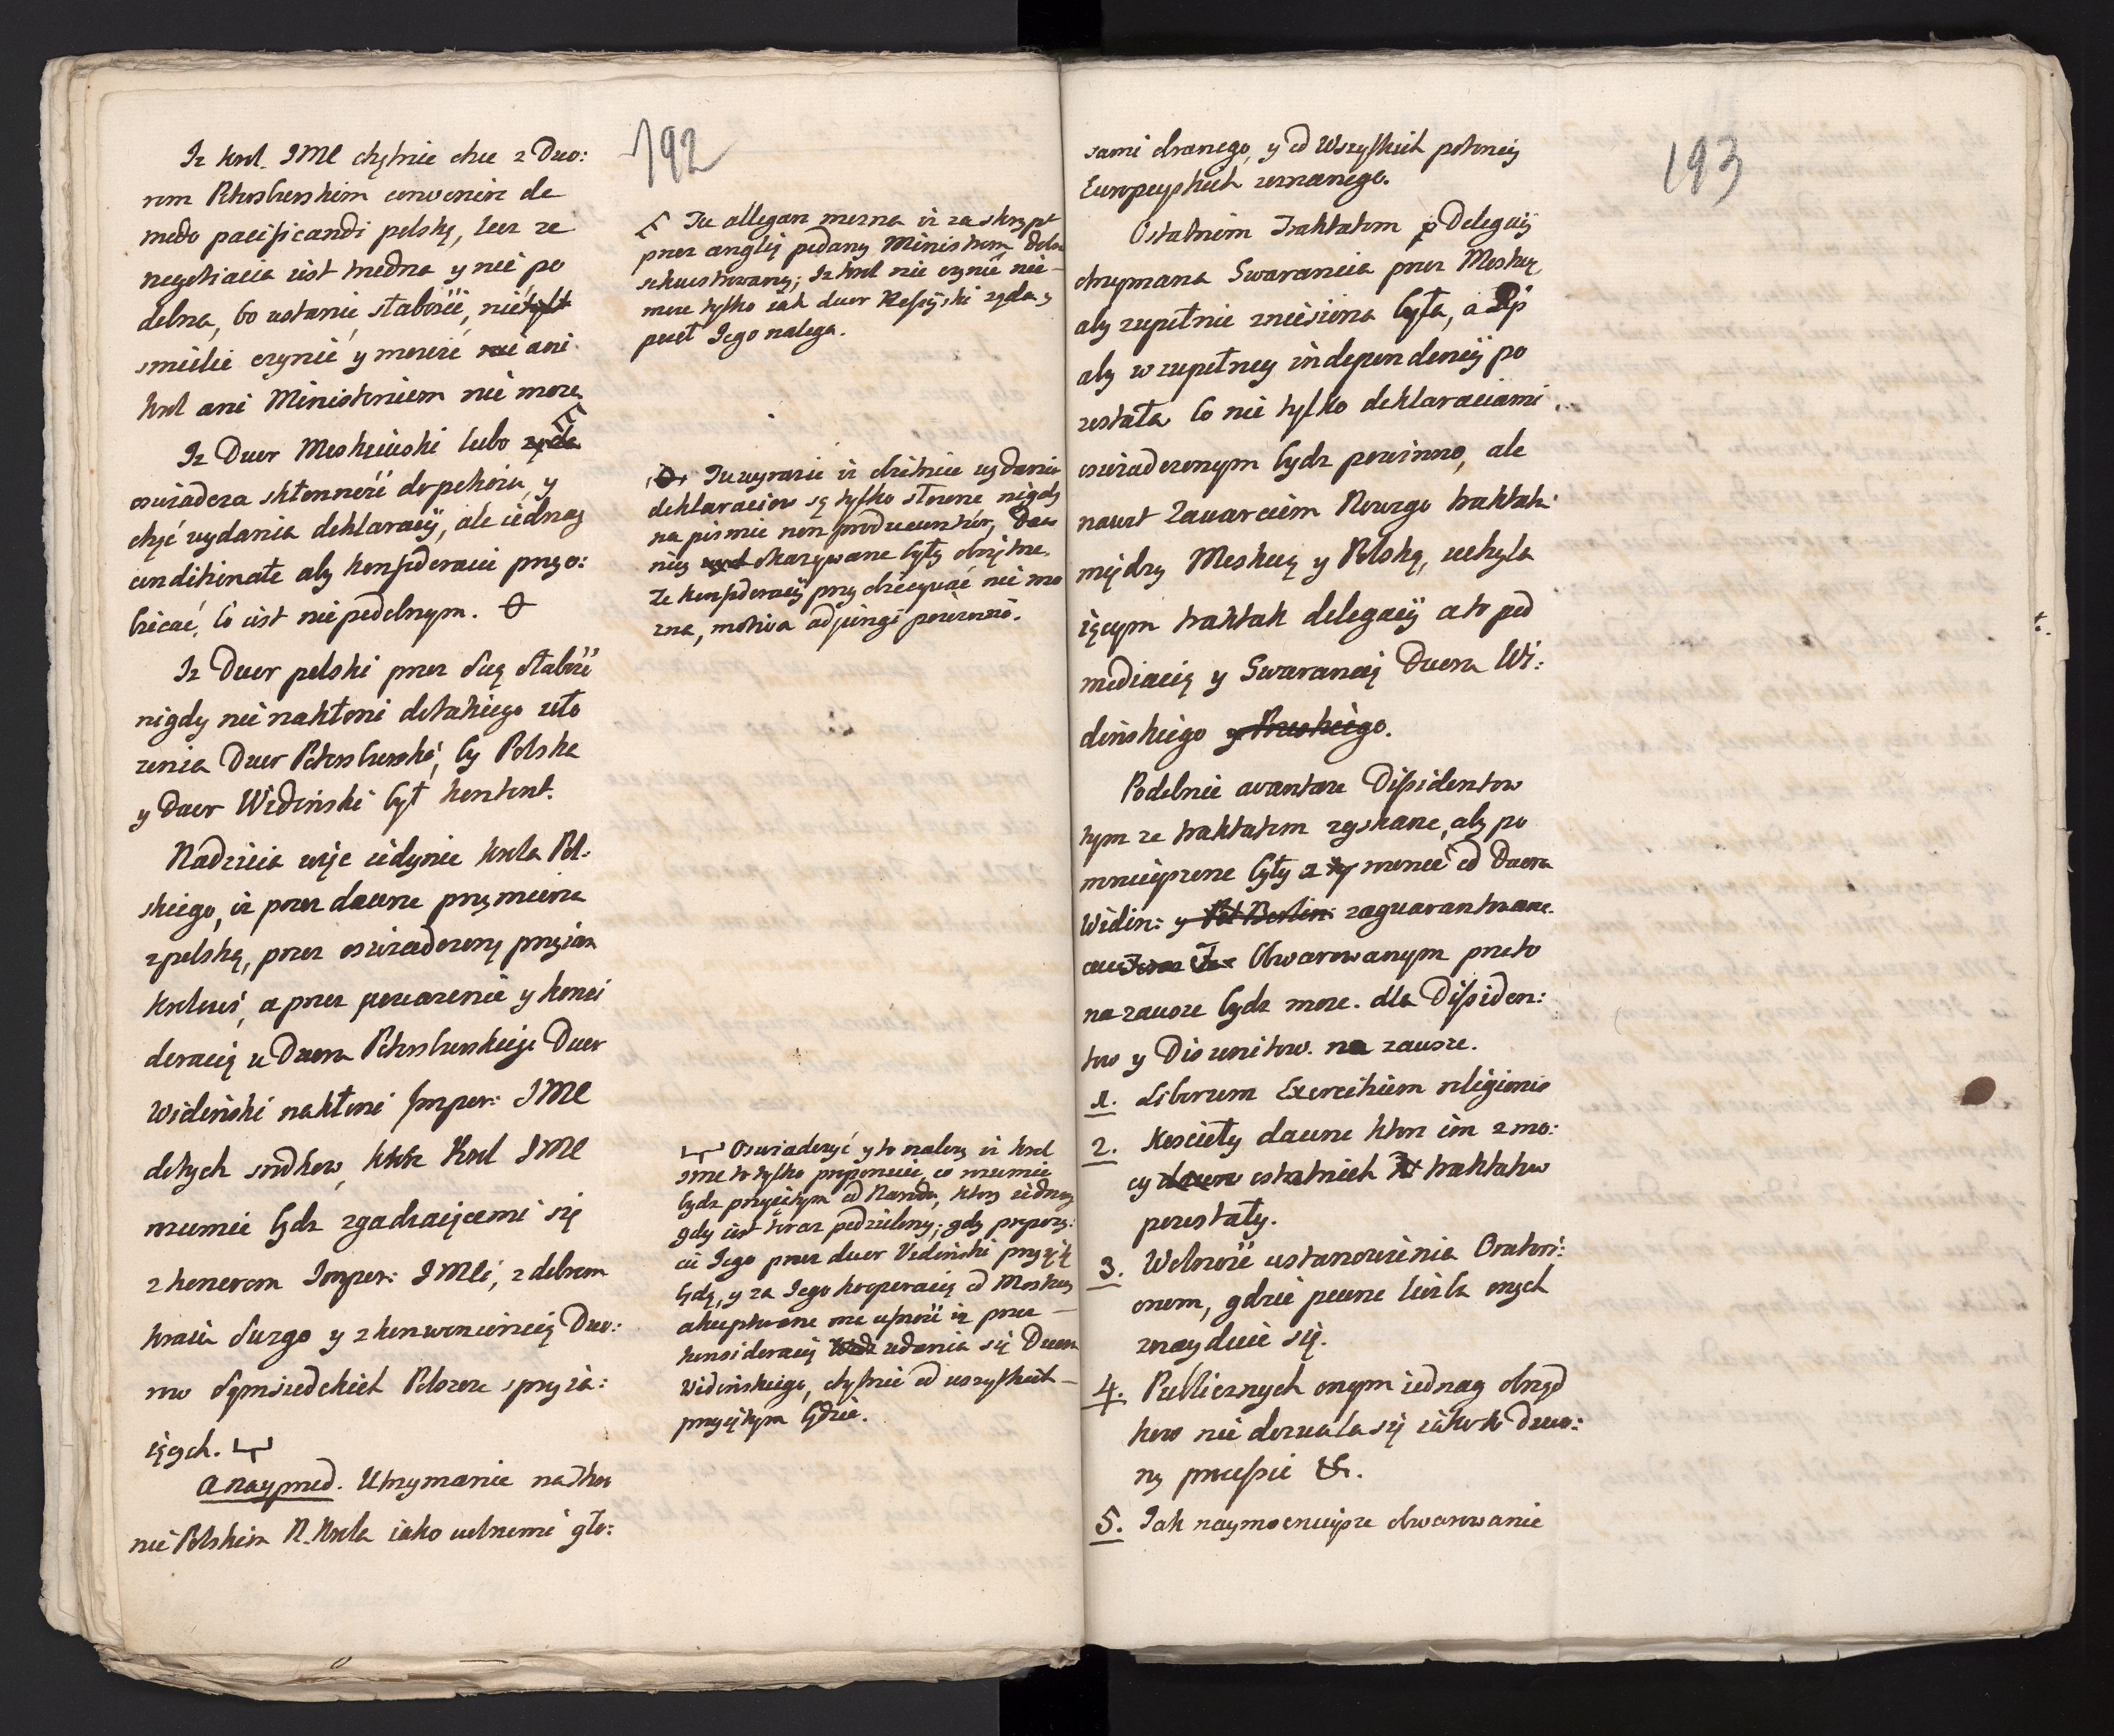 192
Iz Krol JMC chętnie chce z Dwo:
rem Petersburskim convenire de
modo pacificandi polskę, lecz ze
negotiacia iest trudna y nie po
dobna, bo zostanie słabosci, nic
smielie czynić y mowić nie ani
krol ani Ministerium nie moze
Iz Dwor Moskiewski lubo
oswiadcza skłonność do pokoiu, y
chęć wydania deklaracij, ale iednag
conditionate aby konfœderacie przyo:
biecać, co iest niepodobnym. ⊖
Iz Dwor polski przez swą słabość
nigdy nie nakłoni do takiego uło
zenia Dwor Petersburski, by Polska
y Dwor Wideński był kontent.
Nadzieia więc iedynie krola Pol:
skiego, iz przez dawne przymierza
z polską, przez oswiadczoną przyiazn
krolowi, a przez powazenie y konsi
deracią u Dwora Petersburskiego Dwor
Wideński nakłoni Imper: JMC
do tych srodkow, ktore Krol JMC
rozumie bydz zgadzaiącemi się
z honorem Imper: JMCi, z dobrem
kraiu swego y z konweniencią Dwo:
row sąmsiedzkich Polszcze sprzyia:
iących.
a nayprzod. Utrzymanie na Thro
nie Polskim N. Krola iako wolnemi gło:
Tu allegar mozna iz za skrypt
przez anglią podany Ministrom
sekwestrowany; Iz krol nic czynić nie
moze tylko iak dwor Rossyiski ząda y
poseł Jego nalega.
⊖ Tu wyrazić iz obietnice wydania
deklaraciow są tylko słowne nigdy
na pismie non producuntur,
niey okazywane były obrzytne.
Ze konfœderacij przyobiecywać nie mo
zna, motiva adjungi powinno.
Oswiadczyć y to nalezy iz krol
JMC to tylko proponuie, co rozumie
bydz przyiętym od Narodu, ktory iednag
gdy iest teraz podzielony; gdy propozy:
cie Jego przez dwor Videński przyięte
będą, y za Jego kooperacią od Moskwy
akceptowane ma ufność iz przez
konsideracij udania się Dwora
Wideńskiego, chętnie od wszystkich
przyiętym będzie.
193
sami obranego, y od Wszystkich potencij
Europeyskich uznanego.
Ostatnim Traktatem p Delegacij
otrzymana Gwarancia przez Moskwę,
aby zupełnie zniesiona była, a Rp
aby w zupełney independencij po
zostala Co nie tylko deklaraciami
oswiadczonym bydz powinno, ale
nawet Zawarciem Nowego traktatu
między Moskwą y Polską, uchyla
iącym traktat delegacij a to pod
mediacią y Gwarancią Dwora Wi:
deńskiego y Pruskiego.
Podobnie avantaze Dissidentow
tym ze traktatem zyskane, aby po
mnieyszone były a na nowe od Dwora
Widen: y Berlin: zaguarantowane.
Obwarowanym przeto
na zawsze bydz moze. dla Dissiden:
tow y Disunitow. na zawsze.
1. Liberum Exercitium religionis
2. Kościoły dawne ktore im z mo:
cy ostatnich traktatow
pozostały.
3. Wolność ustanowienia Oratori:
orum, gdzie pewna liczba onych
znayduie się.
4. Publicznych onym iednag obrząd
kow nie dozwala się iako to dzwo:
ny processie &.
5. Jak naymocnieysze obwarowanie